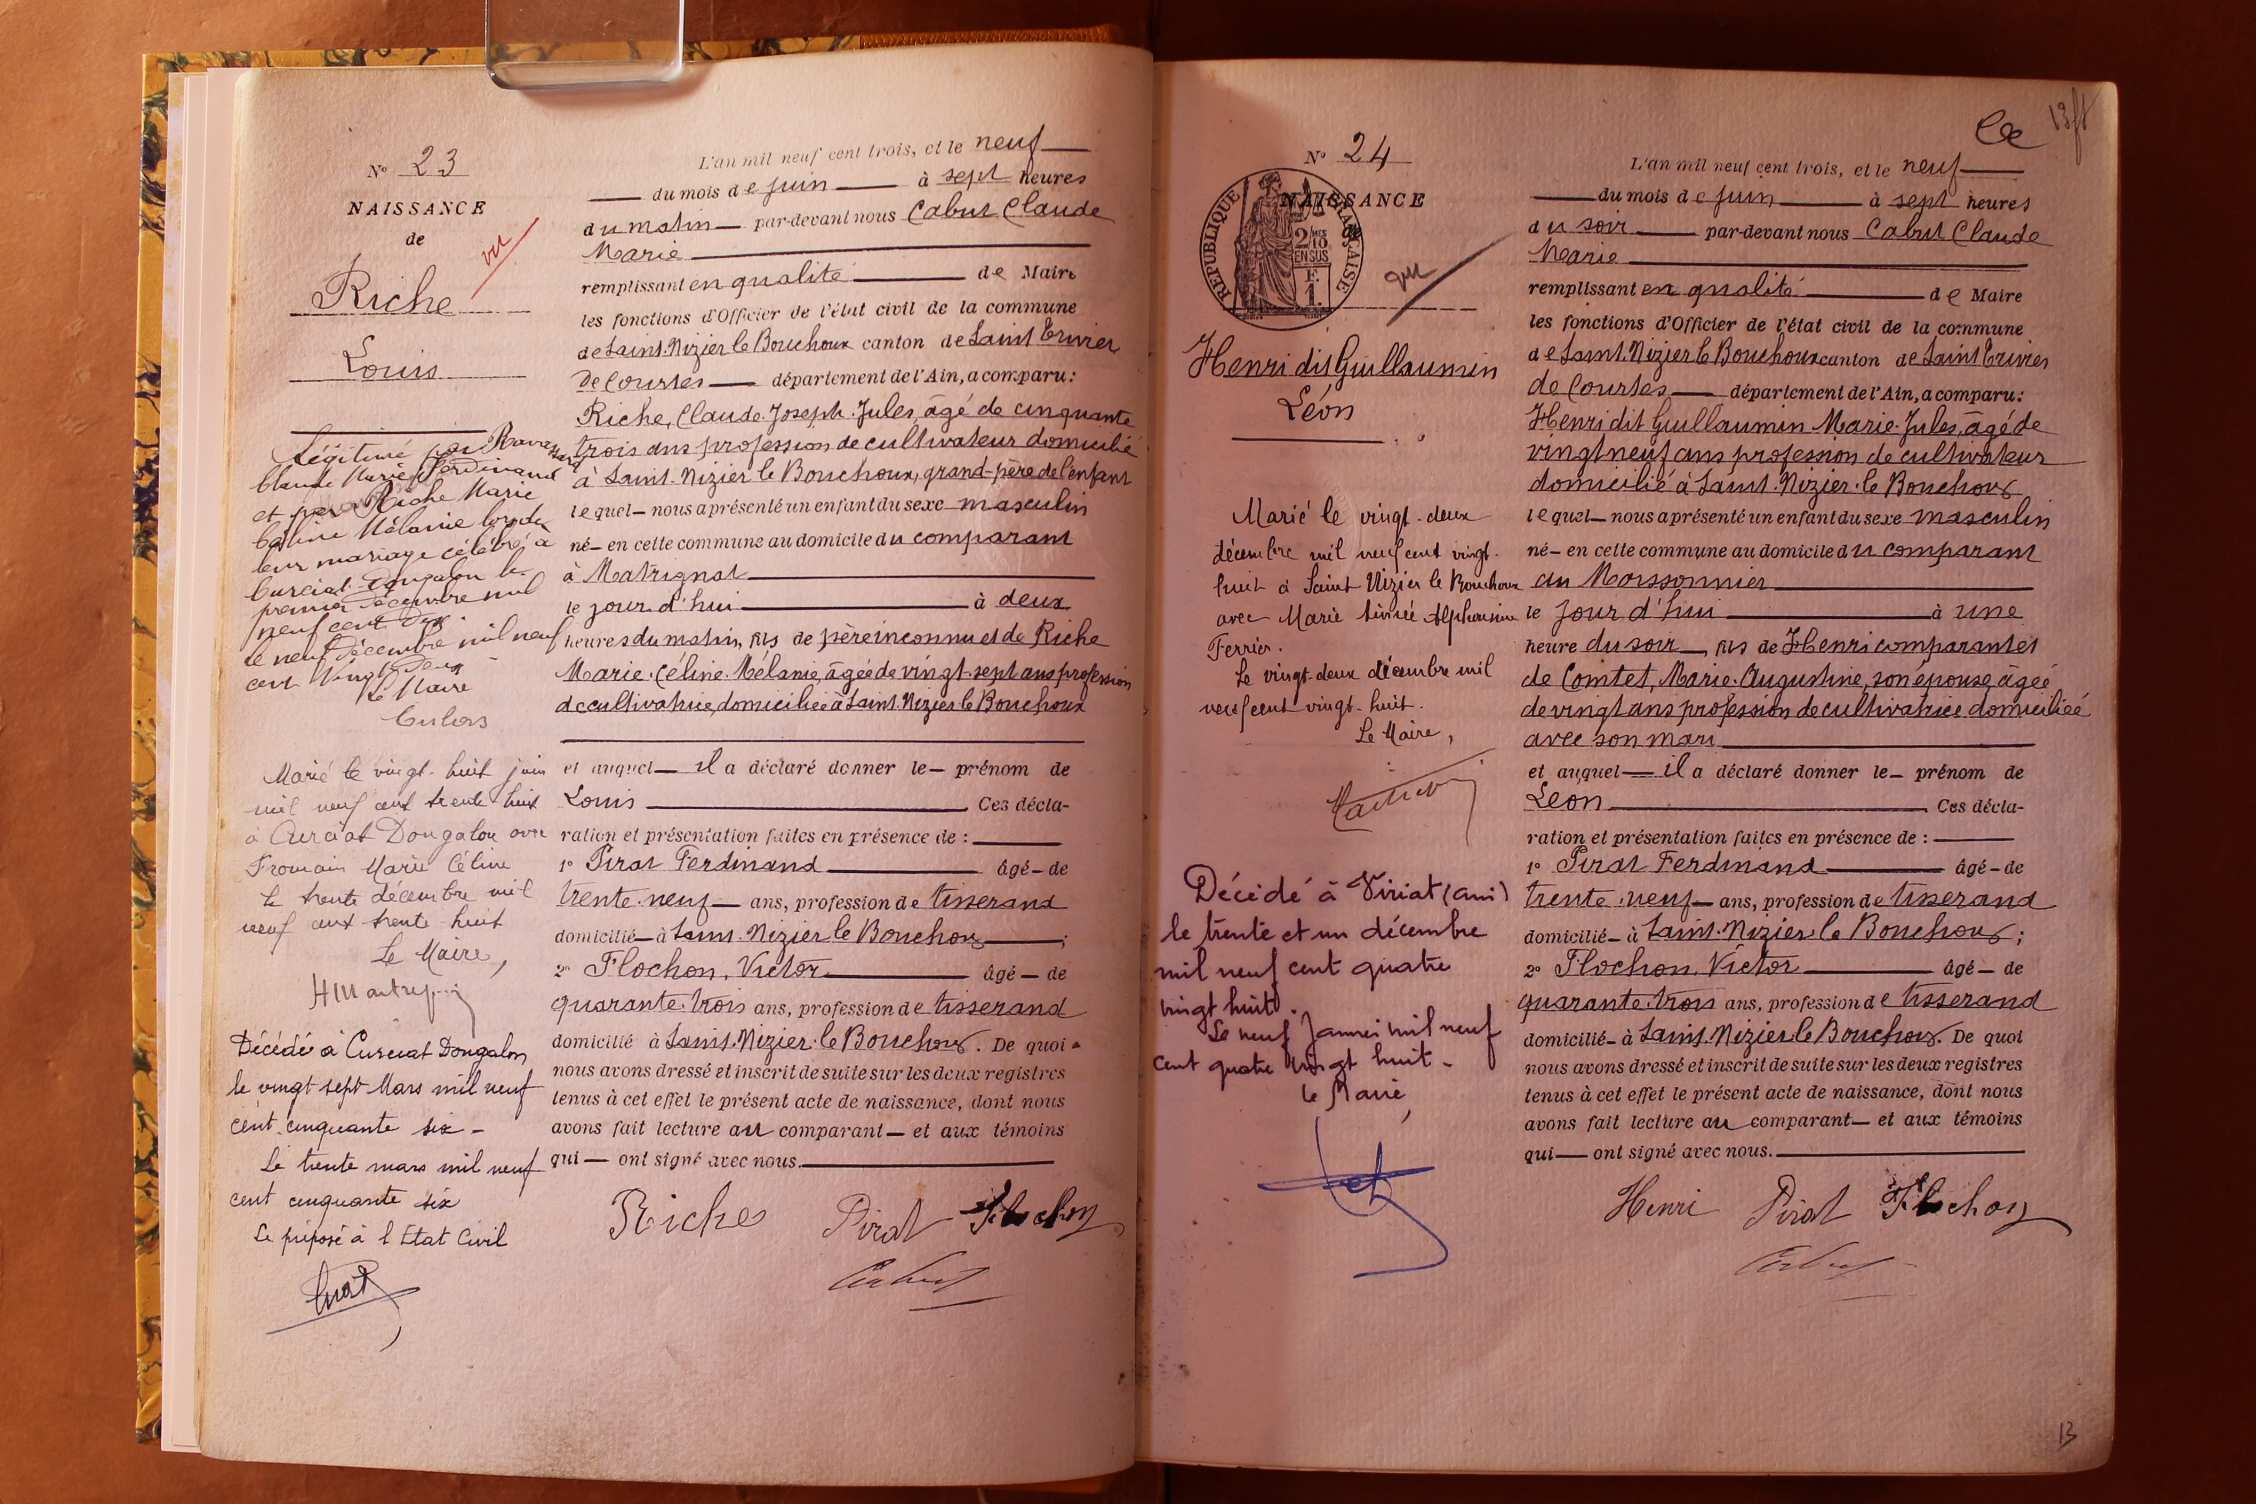 N° 23
NAISSANCE
de
vu
Riche
Louis
Légitimé par Ravassard
Claude Marie Ferdinand
et par Riche Marie
Céline Mélanie lors de
leur mariage célébré à
Curciat Dongalon le
premier décembre mil
neuf cent dix.
Le neuf Décembre mil neuf
cent vingt Deux
Le Maire
Marié le vingt-huit juin
mil neuf cent trente huit
à Curciat Dongalon avec
Fromain Marie Céline
Le trente décembre mil
neuf cent trente huit
Le Maire,
Décédé à Curciat Dongalon
le vingt sept Mars mil neuf
cent cinquante six -
Le trente mars mil neuf
cent cinquante six
Le préposé à l'Etat Civil
L'an mil neuf cent trois, et le neuf
du mois de juin à sept heures
du matin par-devant nous Cabut Claude
Marie
remplissant en qualité de Maire
les fonctions d'Officier de l'état civil de la commune
de Saint. Nizier le Bouchoux canton de Saint Trivier
de Courtes département de l'Ain, a comparu :
Riche, Claude. Joseph. Jules, âgé de cinquante
trois ans profession de cultivateur domicilié
à Saint. Nizier le Bouchoux, grand-père de l'enfant
lequel nous a présenté un enfant du sexe masculin
né en cette commune au domicile du comparant
à Matrignat
le jour d'hui à deux
heures du matin, fils de père inconnu et de Riche
Marie. Céline. Mélanie, âgée de vingt-sept ans profession
de cultivatrice, domiciliée à Saint. Nizier le Bouchoux
et auquel il a déclaré donner le prénom de
Louis Ces décla-
ration et présentation faites en présence de :
1° Pirat Ferdinand âgé de
trente-neuf ans, profession de tisserand
domicilié à Saint. Nizier le Bouchoux ;
2° Flochon, Victor âgé de
quarante-trois ans, profession de tisserand
domicilié à Saint. Nizier le Bouchoux. De quoi
nous avons dressé et inscrit de suite sur les deux registres
tenus à cet effet le présent acte de naissance, dont nous
avons fait lecture au comparant et aux témoins
qui ont signé avec nous.
Riche Pirat Flochon
Cabut
13
N° 24
NAISSANCE
RÉPUBLIQUE FRANÇAISE
2/10 MES
EN SUS
F.
1.
Henri dit Guillaumin
Léon
Marié le vingt-deux
décembre mil neuf cent vingt-
huit à Saint Nizier le Bouchoux
avec Marie Aimée Alphonsine
Ferrier.
Le vingt-deux décembre mil
neuf cent vingt-huit.
Le Maire,
Décédé à Viriat (ain)
le trente et un décembre
mil neuf cent quatre
vingt huit.
Le neuf Janvier mil neuf
cent quatre vingt huit -
le Maire,
L'an mil neuf cent trois, et le neuf
du mois de juin à sept heures
du soir par-devant nous Cabut Claude
Marie
remplissant en qualité de Maire
les fonctions d'Officier de l'état civil de la commune
de Saint. Nizier le Bouchoux canton de Saint Trivier
de Courtes département de l'Ain, a comparu :
Henri dit Guillaumin Marie. Jules, âgé de
vingt neuf ans profession de cultivateur
domicilié à Saint. Nizier. le Bouchoux
lequel nous a présenté un enfant du sexe masculin
né en cette commune au domicile du comparant
au Moissonnier
le jour d'hui à une
heure du soir, fils de Henri comparant et
de Comtet, Marie. Augustine, son épouse, âgée
de vingt ans profession de cultivatrice domiciliée
avec son mari
et auquel il a déclaré donner le prénom de
Léon Ces décla-
ration et présentation faites en présence de :
1° Pirat Ferdinand âgé de
trente-neuf ans, profession de tisserand
domicilié à Saint. Nizier le Bouchoux ;
2° Flochon Victor âgé de
quarante-trois ans, profession de tisserand
domicilié à Saint. Nizier le Bouchoux. De quoi
nous avons dressé et inscrit de suite sur les deux registres
tenus à cet effet le présent acte de naissance, dont nous
avons fait lecture au comparant et aux témoins
qui ont signé avec nous.
Henri Pirat Flochon
Cabut
13